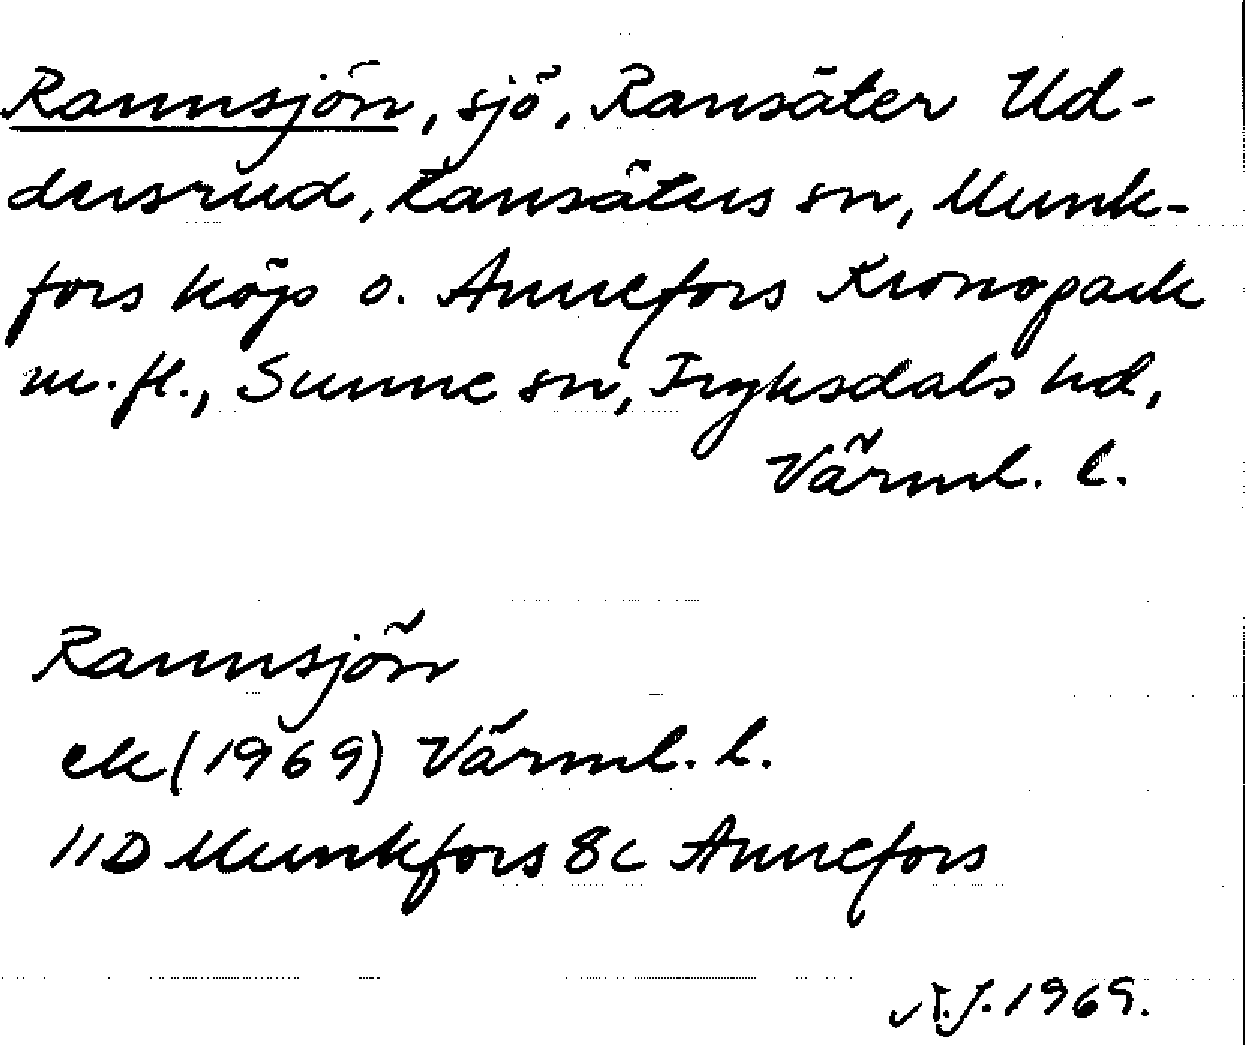 Rannsjön, sjö, Ransäter Ud-
dersrud, Ransäters sn, Munk-
fors köp o. Annefors Kronopark
m.fl., Sunne sn, Fryksdals hd,
Värml. l.
Rannsjön
ek (1969) Värml. l.
11D Munkfors 8c Annefors
A.J. 1969.